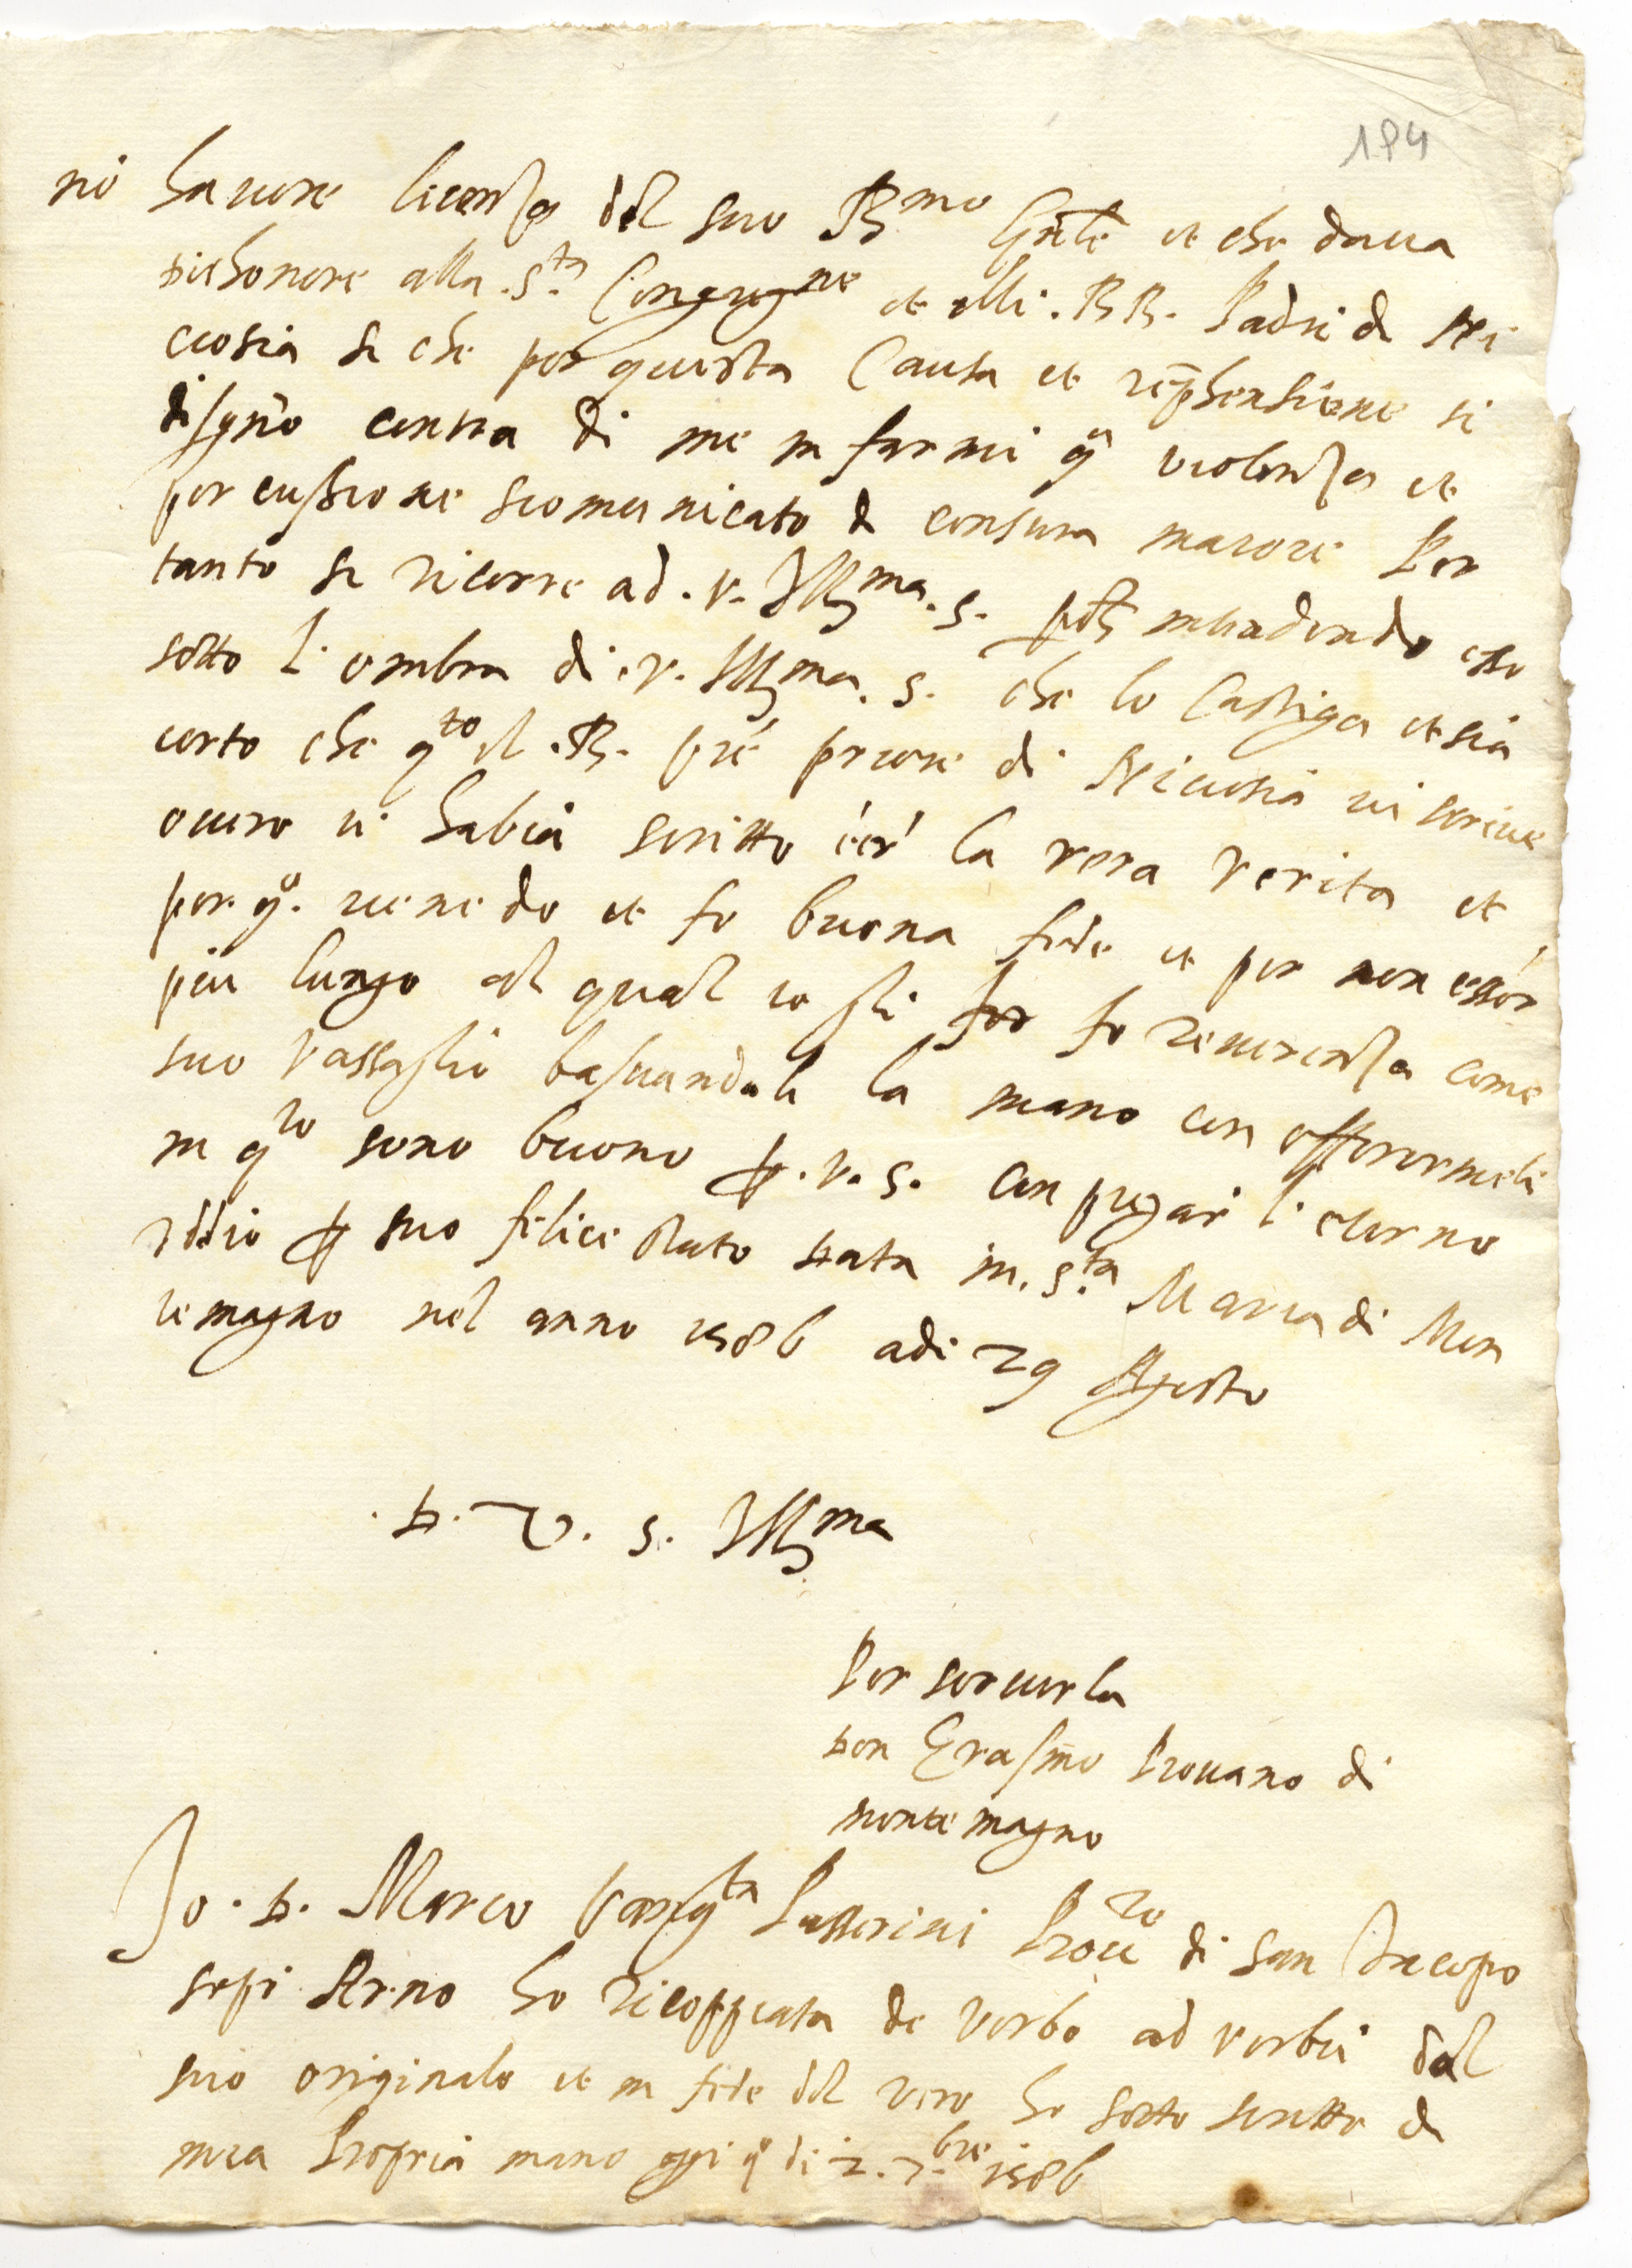 184
nō havere licenza del suo R.mo Gn̄le et che dava
dishonore alla .S.ta Congregne et alli .RR. Padri di Ni
cosia si che per questa Causa et rep̄hensione si
disgnō contra di me in farmi qa violenza et
percussione scomunicato di censura maiore Per
tanto si ricorre ad .V. Ill.ma .S. intendendo esso
sotto l'ombra di .V. Ill.ma .S. che lo Castiga et sia
certo che qto il .R. pre priore di Nicosia vi scrive
overo vi habia scritto eer la vera verita et
per qo. vene do et fo buona fede et per non esser
piu lungo al qual io gli fo reverenza come
suo vassaglio basciandoli la mano con offerermeli
in qto sono buono p. V. S. con pregar l'eterno
Iddio p suo felice stato Data in .S.ta Maria di Mon
temagno nel anno 1586 adi 29 Agosto
.D. V. S. Ill.ma
Per servirla
Don Erasmo Piovano di
Monte magno
Io .D. Marco Passerini di San Iacopo
sopr Arno ho ricoppiata de verbo ad verbū dal
suo originale et in fede del vero ho sotto scritto di
mia Propria mano oggi qo di 2. 7.bre 1586